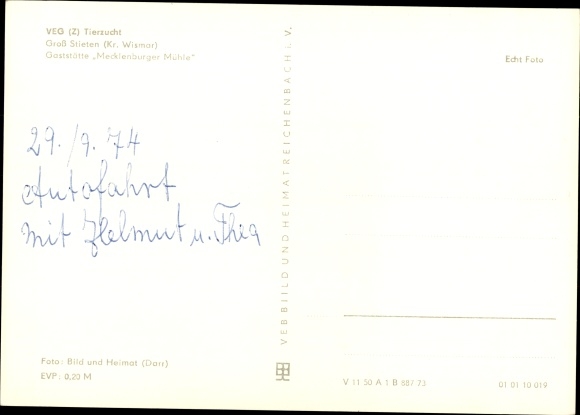 VEG (Z) Tierzucht
Groß Stieten (Kr. Wismar)
Gaststätte „Mecklenburger Mühle"
Echt Foto
29./9. 74
Autofahrt
mit Helmut u. Thea
VEB BILD UND HEIMAT REICHENBACH i. V.
Foto: Bild und Heimat (Darr)
EVP: 0,20 M
V 11 50 A 1 B 887 73
01 01 10 019